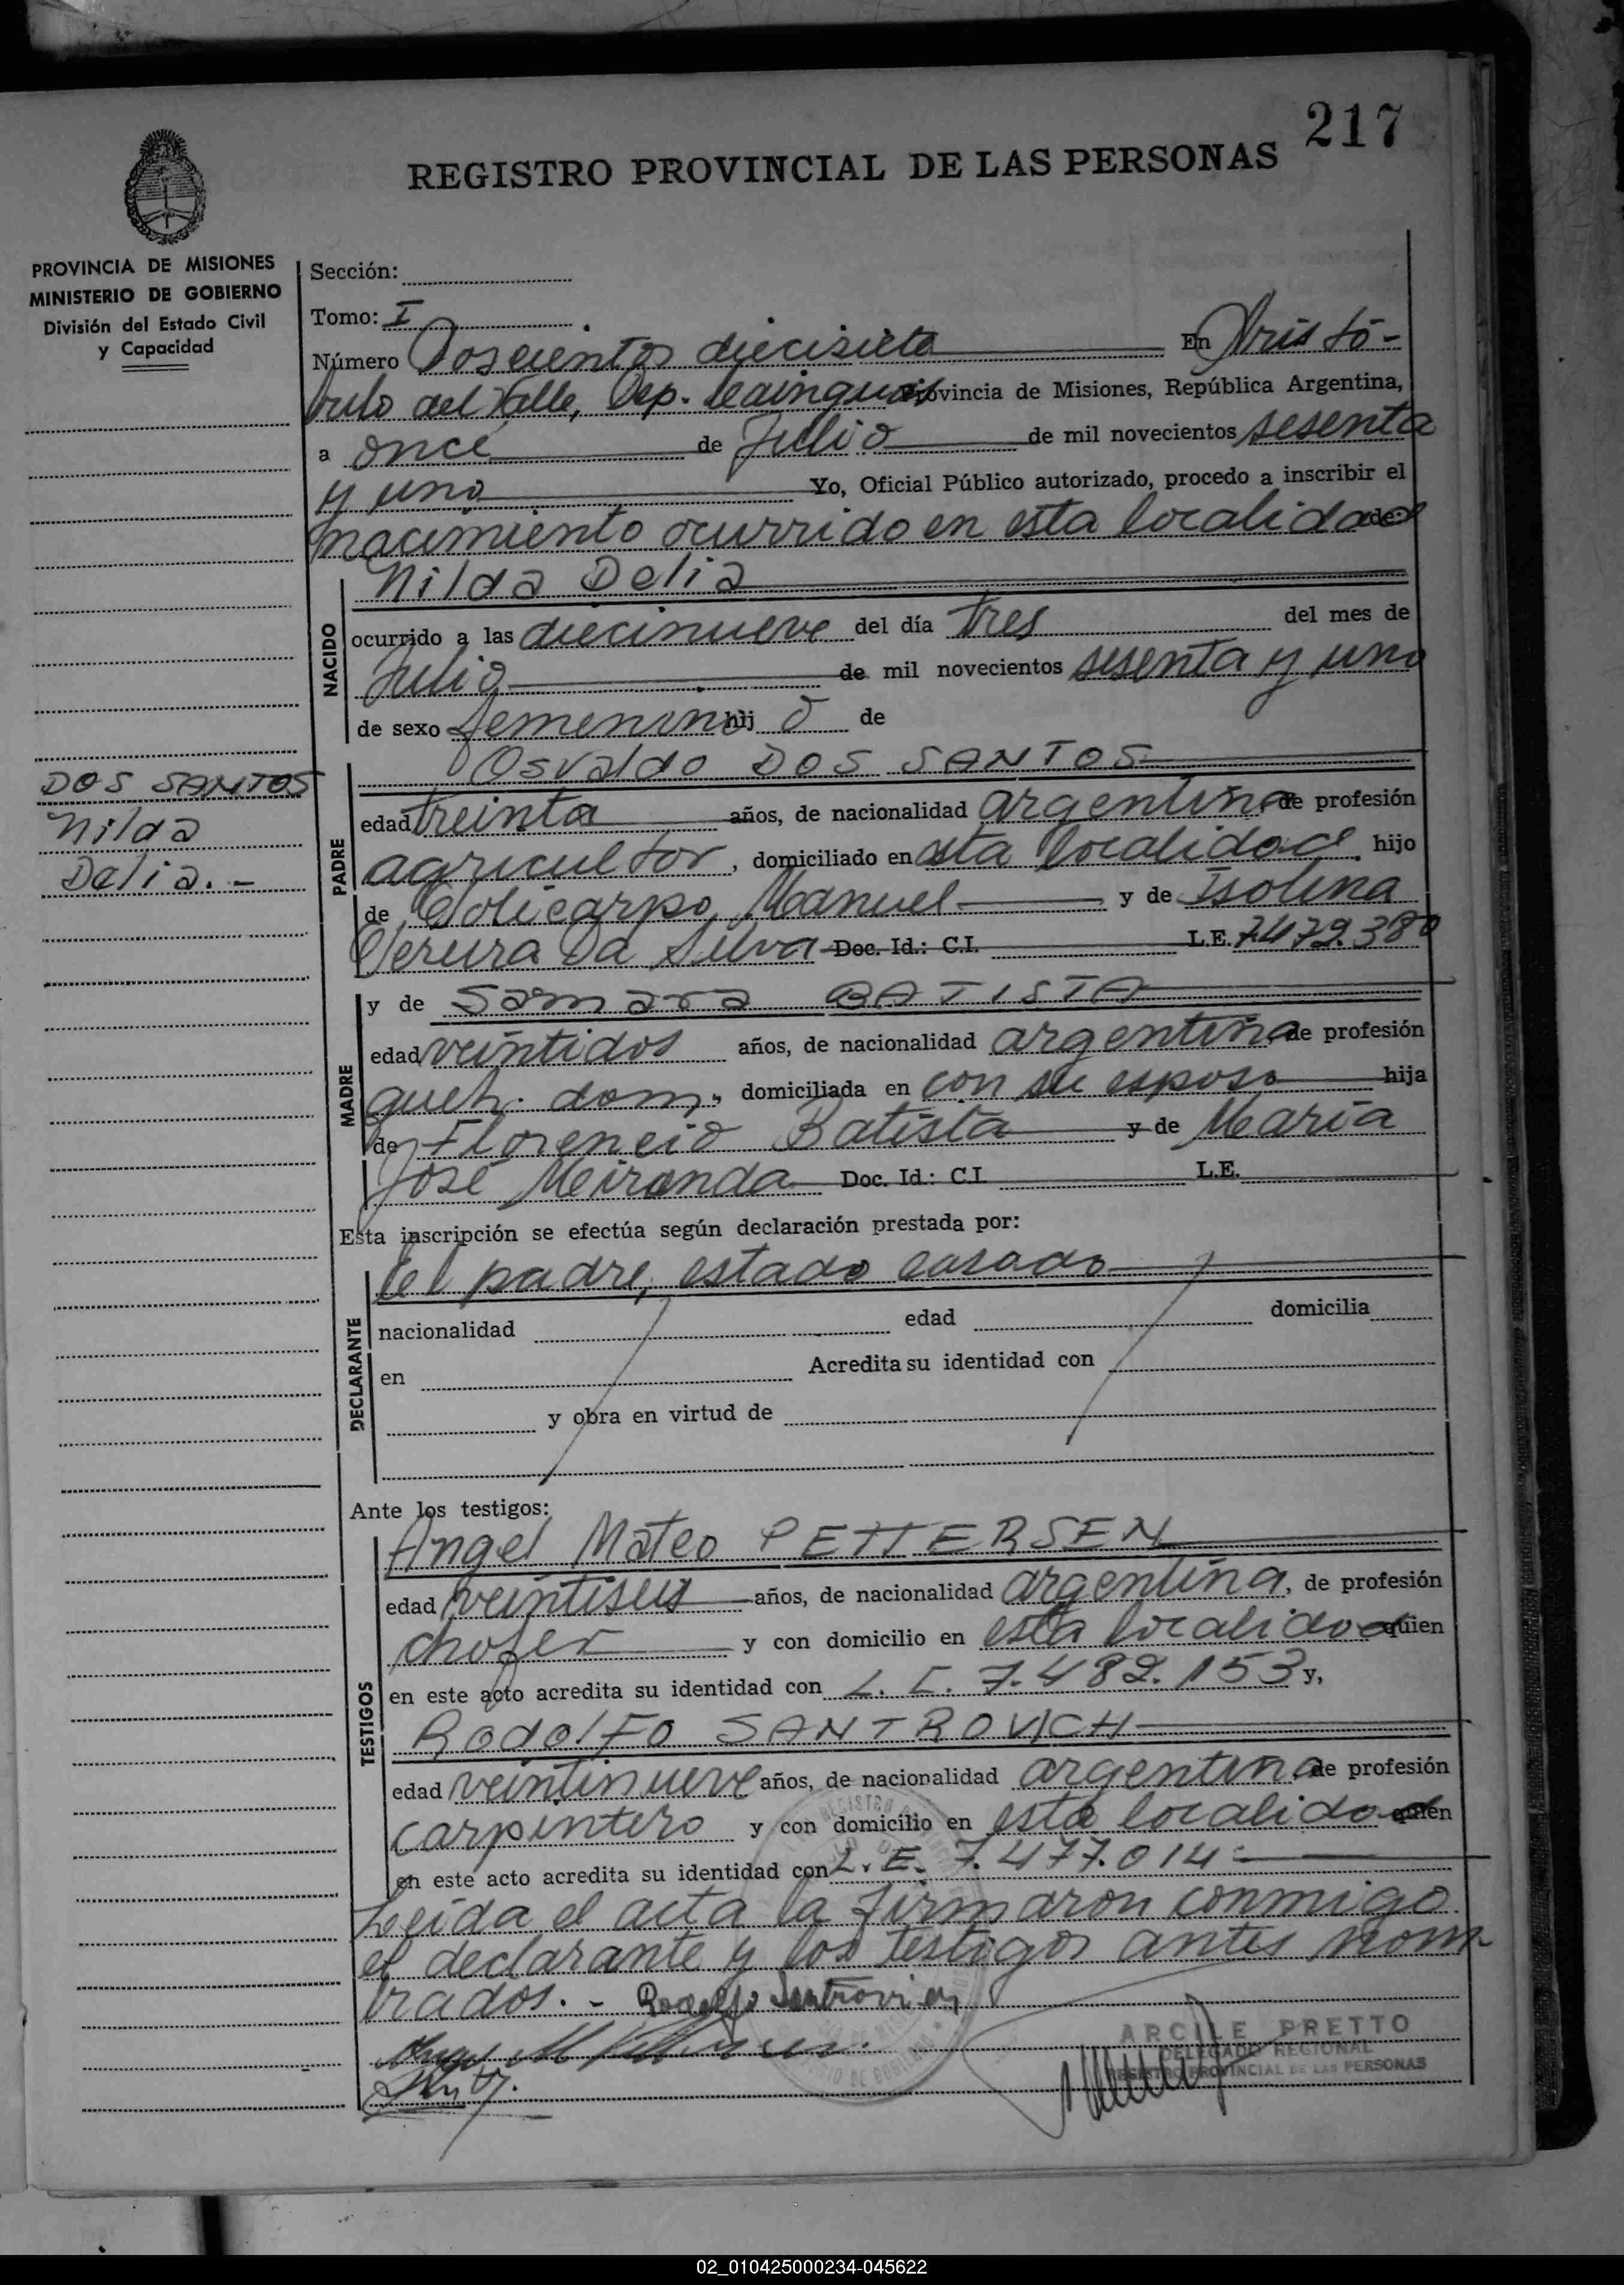 217
REGISTRO PROVINCIAL DE LAS PERSONAS
PROVINCIA DE MISIONES
MINISTERIO DE GOBIERNO
División del Estado Civil
y Capacidad
Sección:
Tomo: I
Número Doscientos diecisiete En Aristó-
bulo del Valle, Dep. Cainguás Provincia de Misiones, República Argentina,
a once de Julio de mil novecientos sesenta
y uno Yo, Oficial Público autorizado, procedo a inscribir el
nacimiento ocurrido en esta localidad de:
NACIDO
Nilda Delia
ocurrido a las diecinueve del día tres del mes de
Julio de mil novecientos sesenta y uno
de sexo femenino hij a de
DOS SANTOS
Nilda
Delia.-
PADRE
Osvaldo DOS SANTOS
edad treinta años, de nacionalidad argentina de profesión
agricultor, domiciliado en esta localidad hijo
de Policarpo Manuel y de Isolina
Pereira Da Silva Doc. Id.: C.I. L.E. 7.479.380
MADRE
y de Samara BATISTA
edad veintidos años, de nacionalidad argentina de profesión
queh. dom., domiciliada en con su esposo hija
de Florencio Batista y de María
José Meiranda Doc. Id.: C.I. L.E.
Esta inscripción se efectúa según declaración prestada por:
DECLARANTE
el padre, estado casado
nacionalidad edad domicilia
en Acredita su identidad con
y obra en virtud de
Ante los testigos:
TESTIGOS
Angel Mateo PETTERSEN
edad veintiseis años, de nacionalidad argentina, de profesión
chofer y con domicilio en esta localidad quien
en este acto acredita su identidad con L. E. 7.482.153 y,
Rodolfo SANTROVICH
edad veintinueve años, de nacionalidad argentina de profesión
carpintero y con domicilio en esta localidad quien
en este acto acredita su identidad con L. E. 7.477.014-
Leída el acta la firmaron conmigo
el declarante y los testigos antes nom-
brados.- Rodolfo Santrovich
ARCILE PRETTO
DELEGADO REGIONAL
REGISTRO PROVINCIAL DE LAS PERSONAS
02_010425000234-045622